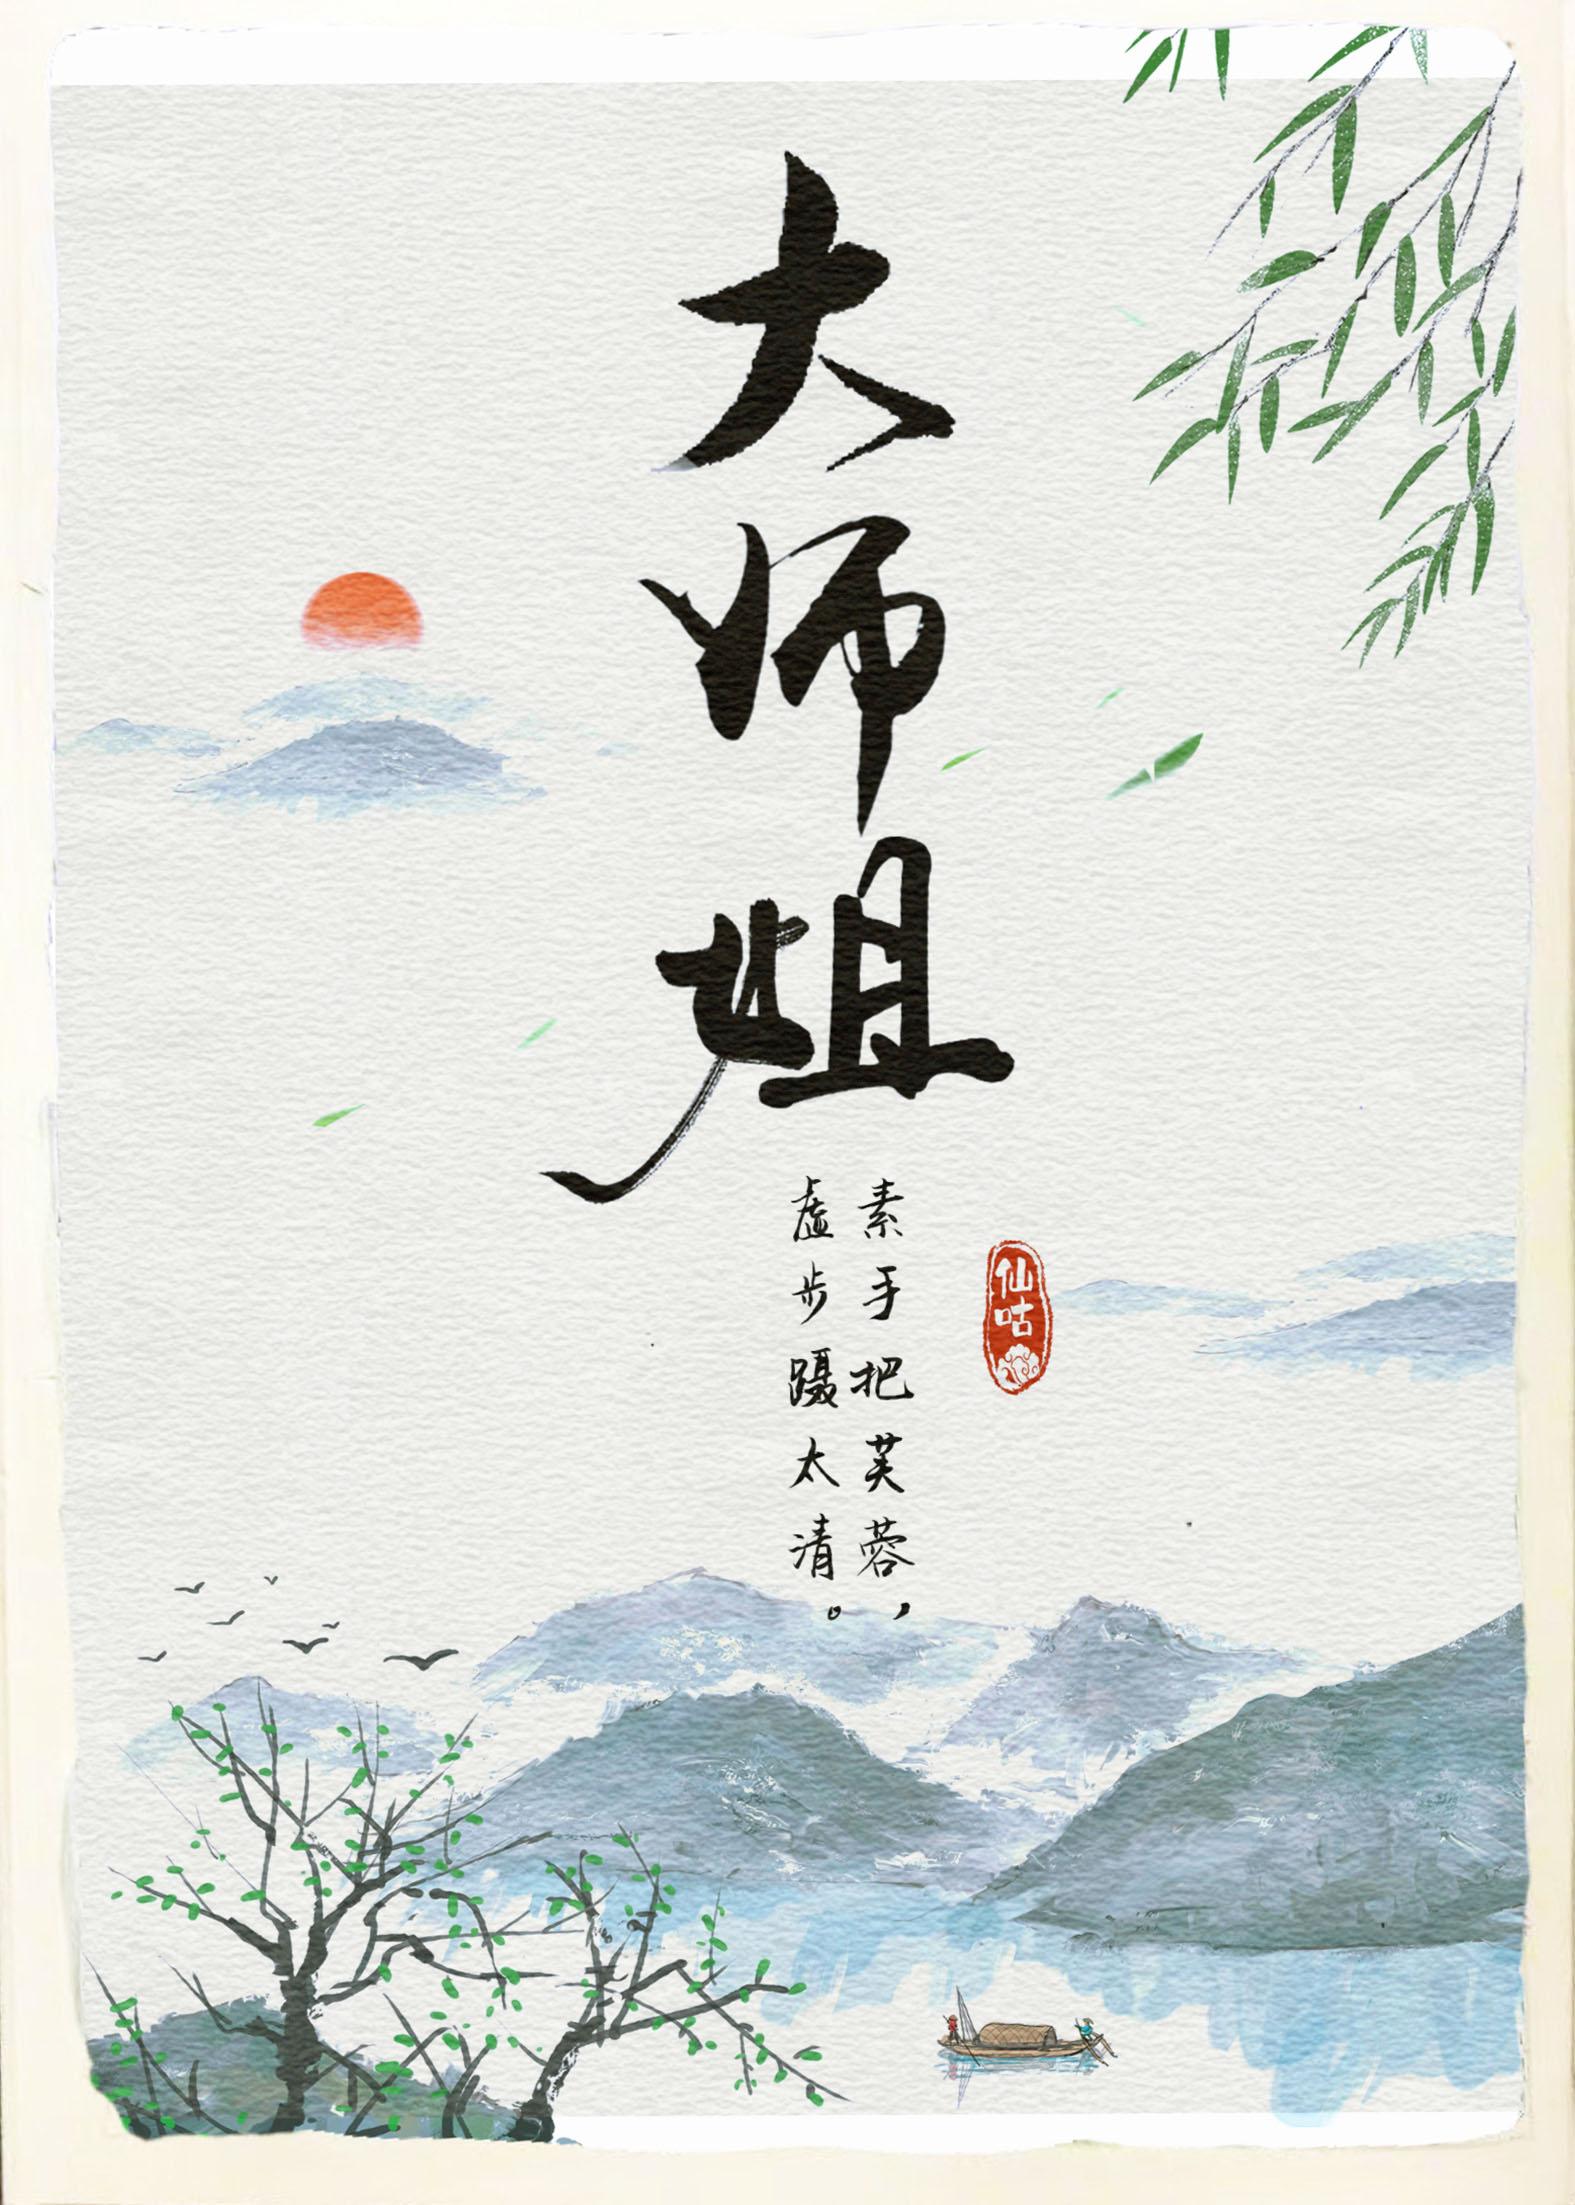 大师姐
素手把芙蓉，
虚步蹑太清。
仙咕